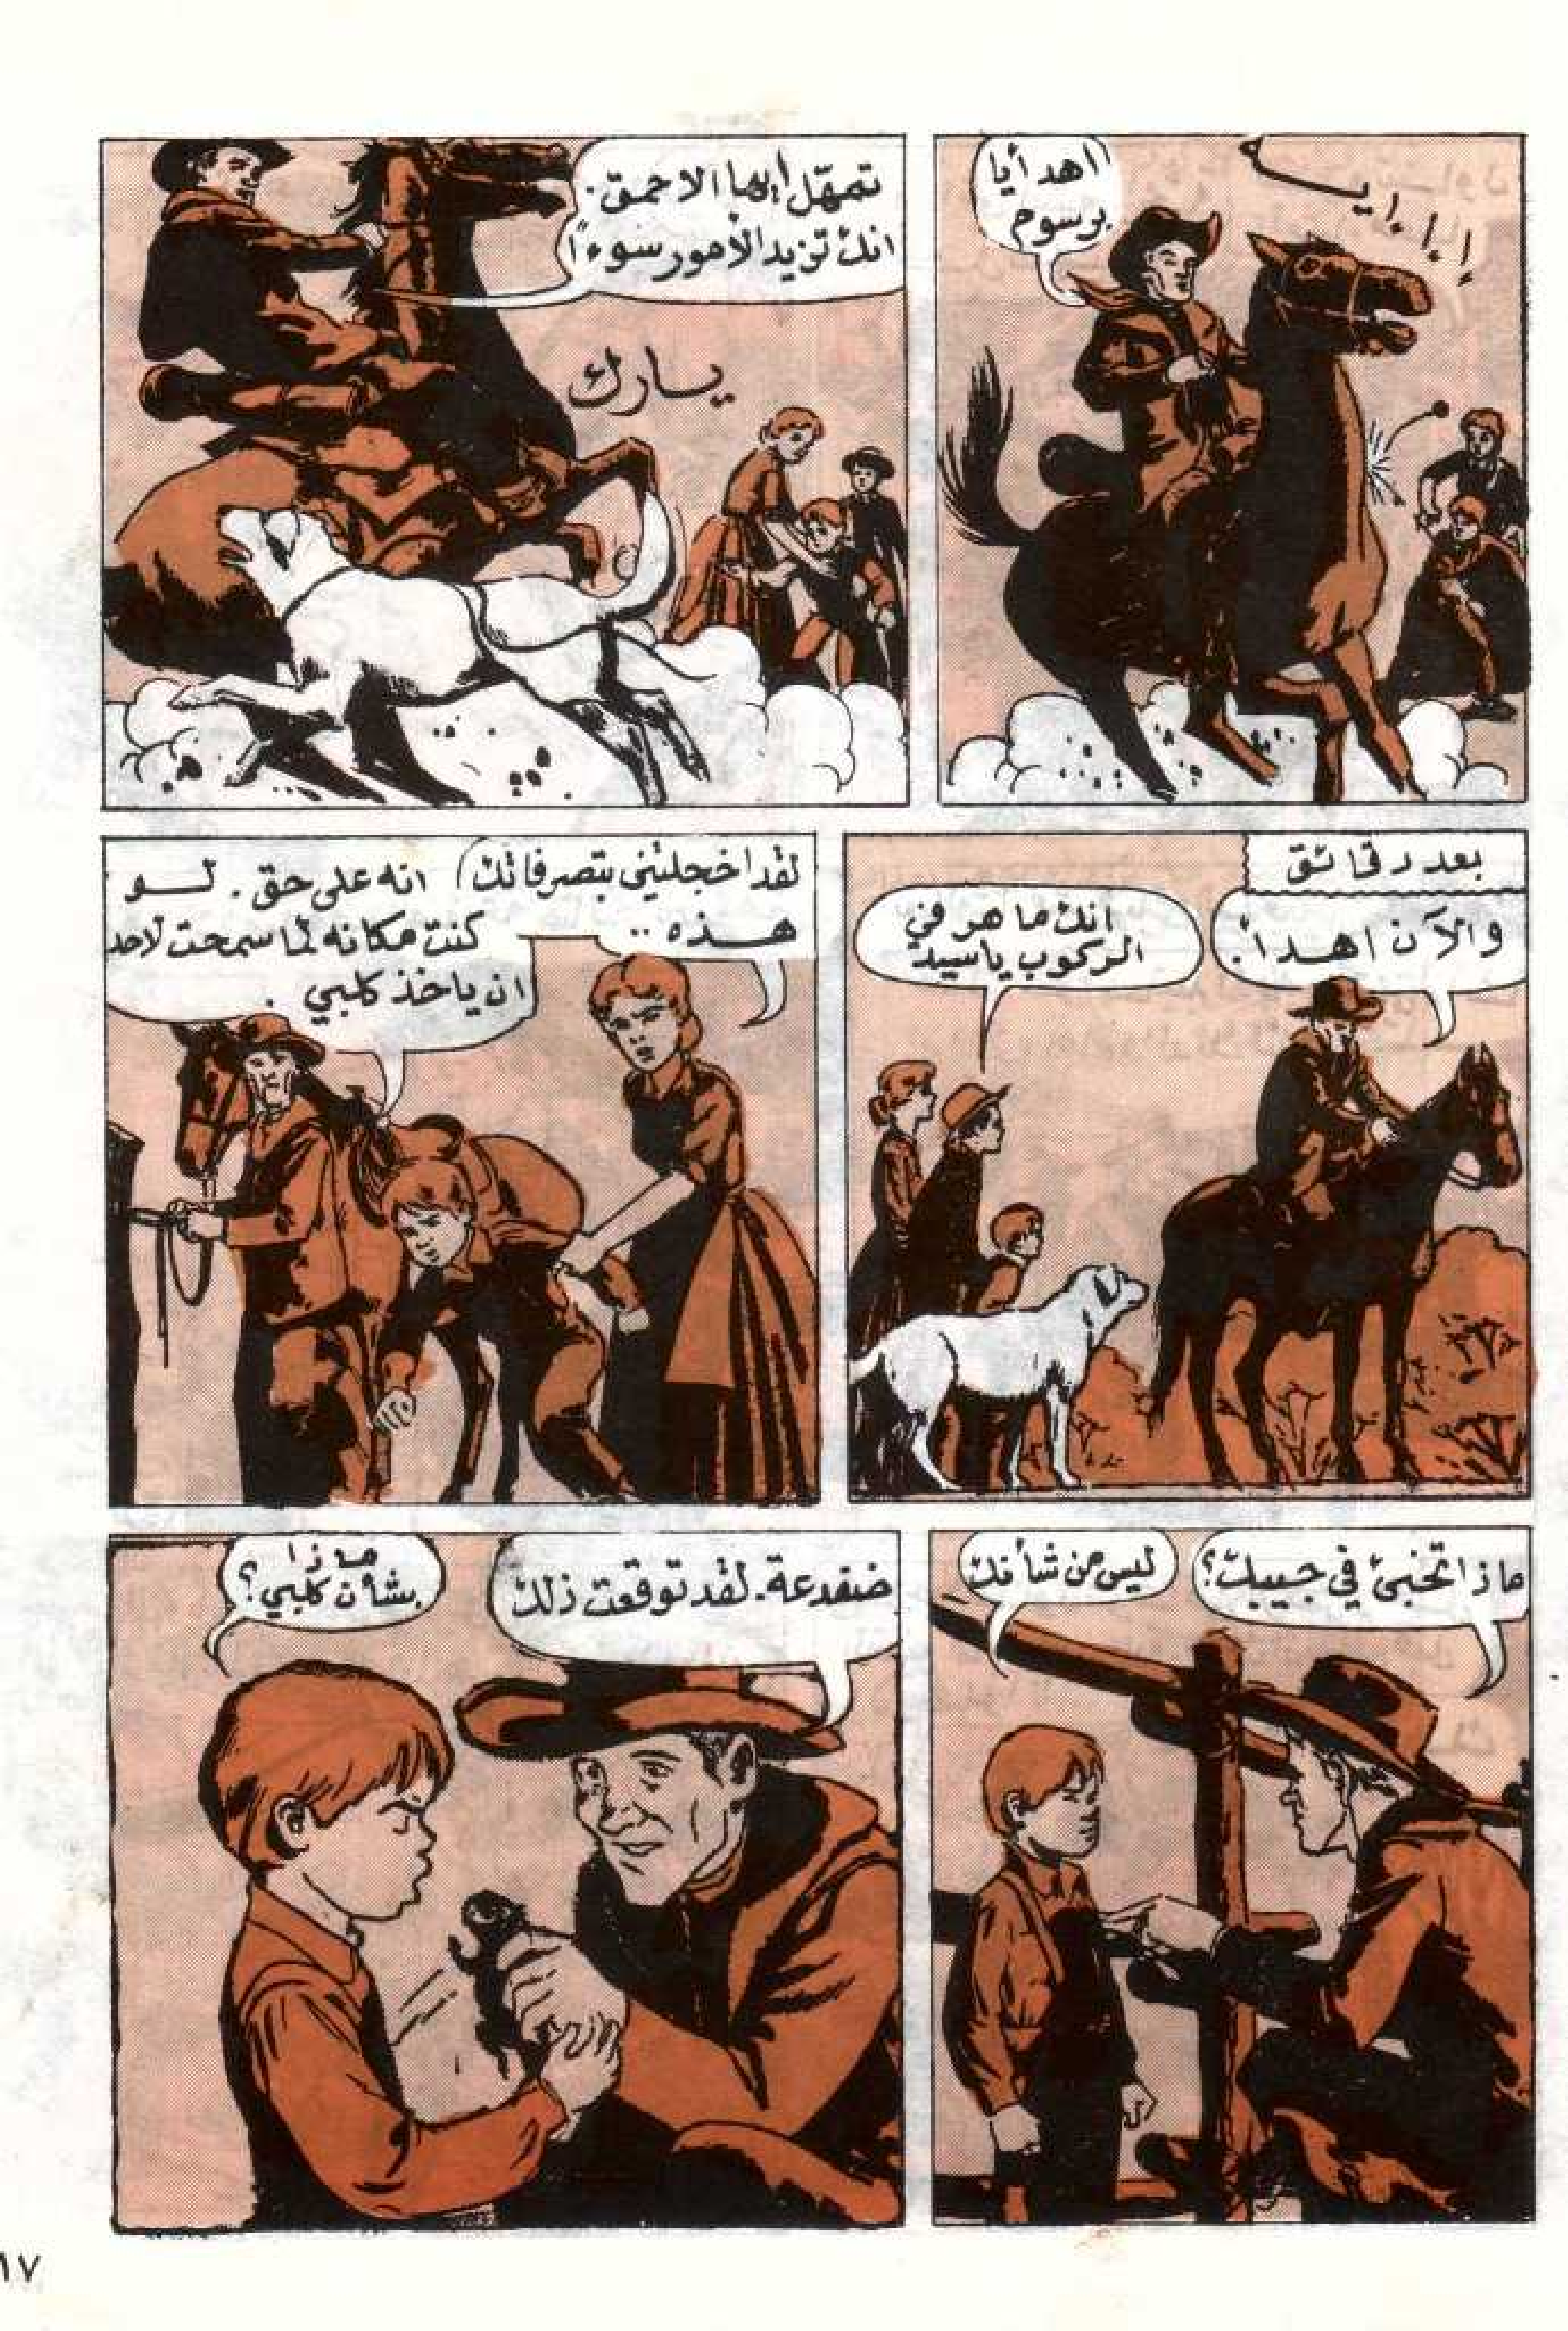 اهدأ يا
برسوم
إ ، إ ، إ يـ ـه
تمهل ايها الاحمق .
انك تزيد الأمور سوءاً
يارك
بعد دقائق
والآن اهدأ .
انك ماهر في
الركوب يا سيد
لقد اخجلتيني بتصرفاتك
هذه ..
انه على حق . لو
كنت مكانه لما سمحت لاحد
ان ياخذ كلبي .
ماذا تخبئ في جيبك؟
ليس من شأنك
ضفدعة. لقد توقعت ذلك
ماذا
بشأن كلبي؟
١٧